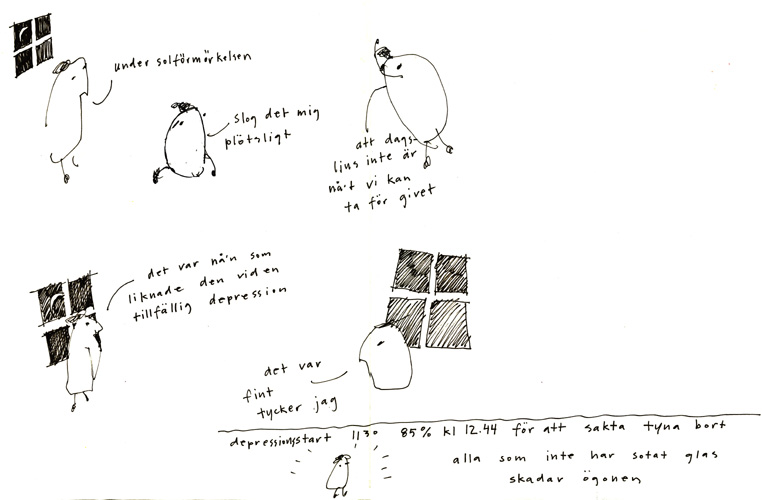 under solförmörkelsen
slog det mig
plötsligt
att dags-
ljus inte är
nå't vi kan
ta för givet
det var nå'n som
liknade den vid en
tillfällig depression
det var
fint
tycker jag
depressionsstart 1130 85% kl 12.44 för att sakta tyna bort
alla som inte har sotat glas
skadar ögonen